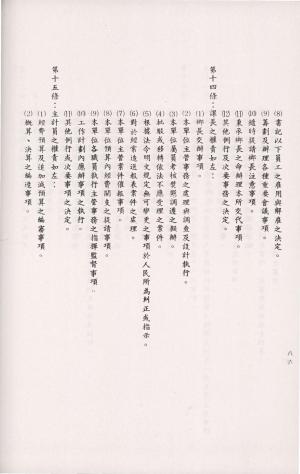 ⑻書記以下員工之雇用與解雇之決定。
⑼籌劃及辦理各種重要會議事項。
⑽隨時提供鄉長注意事項。
⑾秉承鄉長之命辦理本所交代事項。
⑿其他例行及次要事務之決定。
第十四條：課長之權責如左：
⑴鄉長交辦事項。
⑵本單位主管事務之處理與調查及設計執行。
⑶本單位屬員考核獎懲調遷之擬辦。
⑷批駁或移轉依法不應受理之案件。
⑸根據法令明文規定無可變更之事項於人民所為糾正或指示。
⑹對於經常造送報表案件之處理。
⑺本單位主管業案件催報事項。
⑻本單位預算內經費開支之提請事項。
⑼本單位各職員執行主管事務之指揮監督事項。
⑽工作計劃內應辦事項之執行。
⑾其他例行或次要事項之決定。
第十五條：主計員之權責如左：
⑴經費預算及追加減預算之編審事項。
⑵概算、決算之編造事項。
八六